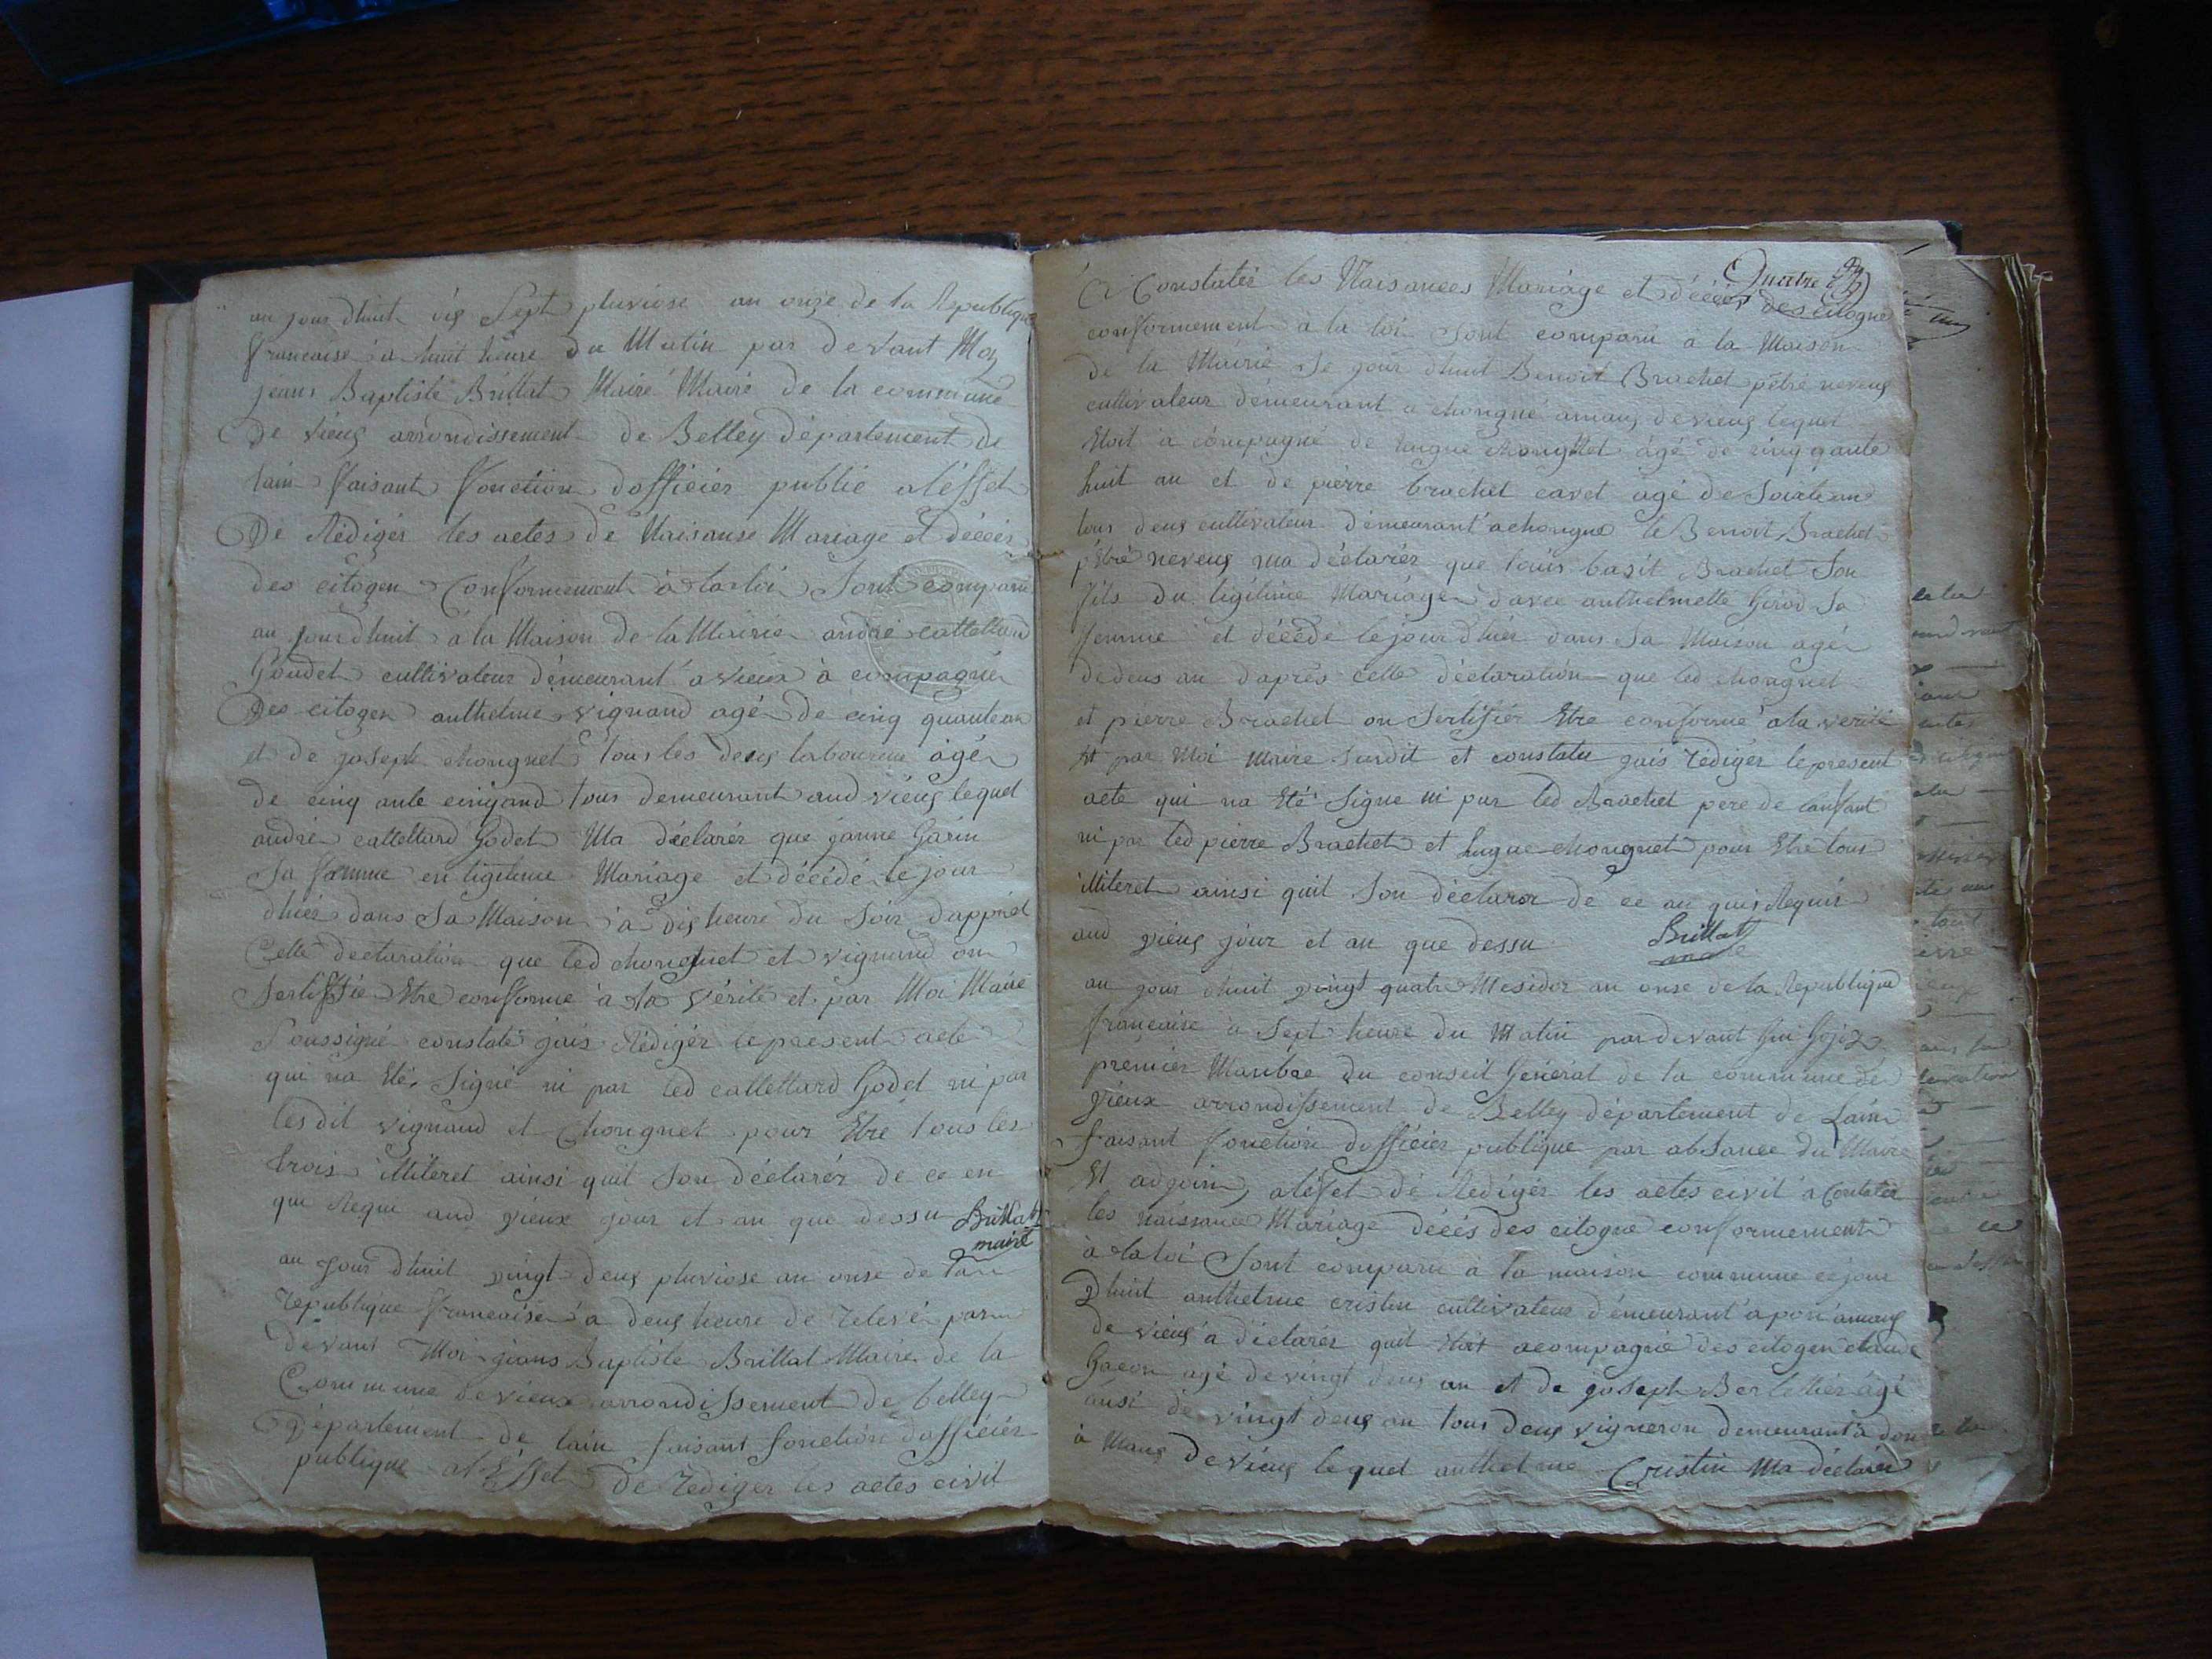 au jour dhuit dis Sept pluviose an onze de la Republique
francaise a huit heure du Matin par devant Moy
jeans Baptiste Brillat Maire Maire de la commune
De vieux arrondissement de Belley département de
lain faisant fonction dofficier public aléffet
De Rédiger les actes de Naisanse Mariage et décéés
des citogen Conformement à la loi Sont comparu
au jourdhuit a la Maison de la Mairie andré cattelland
Goudet cultivateur démeurant a vieux à compagné
Des citogen anthelme vignand agé de cinq quante an
et de joseph chongnet tous les deux laboureur agé
de cinq ante cinq and tous demeurant aud vieux lequel
andré cattelland Godet Ma déclarér que janne Garin
Sa famme en ligitime Mariage et décédé le jour
dhiér dans Sa Maison à dis heure du Soir dapprél
Celle declaration que led chongnet et vignand on
Sertiffié Etre conforme à la vérité et par Moi Maire
Soussigné constaté jais Rédigér le present acte
qui na Eté Signé ni par led cattelland Godet ni par
lesdit vignaud et Chongnet pour Etre tous les
trois illiteret ainsi quil Son déclarér de ce en
qui Requi aud vieux jour et an que dessu Brillat
maire
au jour dhuit vingt deux pluviose an onse de la
republique francaise a deux heure de relevé par
devant Moi jeans Baptiste Brillat Maire de la
Commune de vieux arrondissement de belley
Département de lain faisant fonction dofficiér
publique al Effet de rediger les actes civil
Quatre
A Constatér les Naisances Mariage et décéés des citogne
conformement à la loi Sont comparu a la Maison
de la Mairie Se jour dhuit Benoit Brachet pétré neveux
cultivateur démeurant a chongne amaux de vieux lequel
Etoit a compagné de hugue chongnet agé de cinq qante
huit an et de pierre brachet cavet agé de Soixte an
tous deux cultivateur démeurant achongne le Benoit Brachet
pétré neveux ma déclarér que louis basit Brachet Son
fils du ligitime Mariage davec anthelmette Girod Sa
femme et décédé le jour dhiér dans Sa Maison agé
de deux an daprés cette déclaration que led chongnet
et pierre Brachet on Sertifiér Etre conforme a la verité
Et par Moi maire Susdit et constatu jais rédigér le present
acte qui na Eté Signe ni par led Brachet pere de lanfant
ni par led pierre Brachet et hugue chongnet pour Etre tous
illiteret ainsi quil Son déclarer de ce au jais Requis
aud vieux jour et an que dessu Brillat
maire
au jour dhuit vingt quatre Mesidor an onse de la Republique
francaise a Sept heure du Matin par devant Gui Gojoz
prémier Manbre du conseil Général de la commune de
vieux arrondissement de Belley département de Lain
faisant fonction dofficiér publique par absance du Maire
Et adjoin aléfet de Redigér les actes civil a Contater
les naissance Mariage décés des citogne conformement
à la loi Sont comparu a la maison commune ce jour
Dhuit anthelme cristin cultivateur démeurant a poni amaux
de vieux a déclarér quil Etoit acompagné des citogen claude
Gacon agé de vingt deux an et de joseph Berlettiér agé
ausi de vingt deux an tous deux vigneron demeurant à don
à Maux De vieux lequel anthelme Cristin Ma déclarér